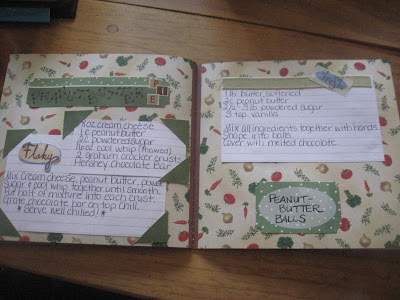 PIE
Flaky
8oz cream cheese
1c peanut butter
2c powdered sugar
12oz cool whip (thawed)
2 graham cracker crusts
Hershey Chocolate Bar
Mix Cream cheese, peanut butter, powd.
Sugar & cool whip together until smooth
Put half of mixture into each crust.
Grate chocolate bar on top. Chill.
*Serve well chilled!*
fresh
1 lb butter, softened
2c peanut butter
2 1/2-3 lb powdered sugar
3 tsp. vanilla
Mix all ingredients together with hands
Shape into balls
Cover with melted chocolate.
PEANUT-
BUTTER
BALLS